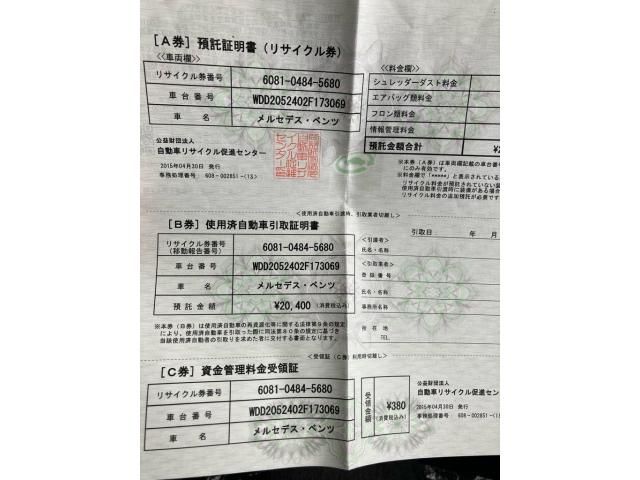 [A券] 預託証明書 (リサイクル券)
<車両欄>
リサイクル券番号 6081-0484-5680
車台番号 WDD2052402F173069
車名 メルセデス・ベンツ
公益財団法人
自動車リサイクル促進センター
2015年04月30日 発行
事務処理番号 608-002851-(1S)
<料金欄>
シュレッダーダスト料金
エアバッグ類料金
フロン類料金
情報管理料金
預託金額合計
※本券(A券)は車両欄記載の車台番
にのみ有効です。
※料金欄で「*****」と表示されている
リサイクル料金が預託されていない装
使用済自動車引渡時に装備がある場合
リサイクル料金の追加預託が必要です。
<使用済自動車引渡時、引取業者切離し>
[B券] 使用済自動車引取証明書
リサイクル券番号
(移動報告番号) 6081-0484-5680
車台番号 WDD2052402F173069
車名 メルセデス・ベンツ
預託金額 ¥20,400 (消費税込み)
※本券(B券)は使用済自動車の再資源化等に関する法律第9条の規定
により、使用済自動車を引取った際に同法第80条の規定に基づき
当該使用済自動車の引取りを求めた者に交付する書面となります。
引取日: 年 月
<引渡者>
氏名・名称
<引取業者>
登録番号
氏名・名称
事務所名称
所在地
TEL.
<受領証(C券)利用時切離し>
[C券] 資金管理料金受領証
リサイクル券番号 6081-0484-5680
車台番号 WDD2052402F173069
車名 メルセデス・ベンツ
受領金額 ¥380
(消費税込み)
公益財団法人
自動車リサイクル促進セン
2015年04月30日 発行
事務処理番号 608-002851-(1S